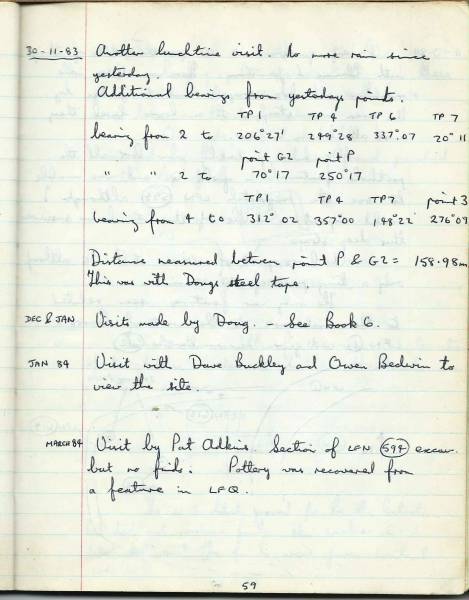 30-11-83 Another lunchtime visit. No more rain since
yesterday.
Additional bearings from yesterdays points.
TP1 TP4 TP6 TP7
bearing from 2 to 206°27' 249°28 337°07 20°11
point G2 point P
" " 2 to 70°17 250°17
TP1 TP4 TP7 point 3
bearing from 4 to 312°02 357°00 148°22' 276°09
Distance measured between point P & G2 = 158.98m
This was with Dougs steel tape.
DEC & JAN Visits made by Doug. - See Book 6.
JAN 84 Visit with Dave Buckley and Owen Bedwin to
view the site.
MARCH 84 Visit by Pat Adkins. Section of LFN 594 excav.
but no finds. Pottery was recovered from
a feature in LFQ.
59